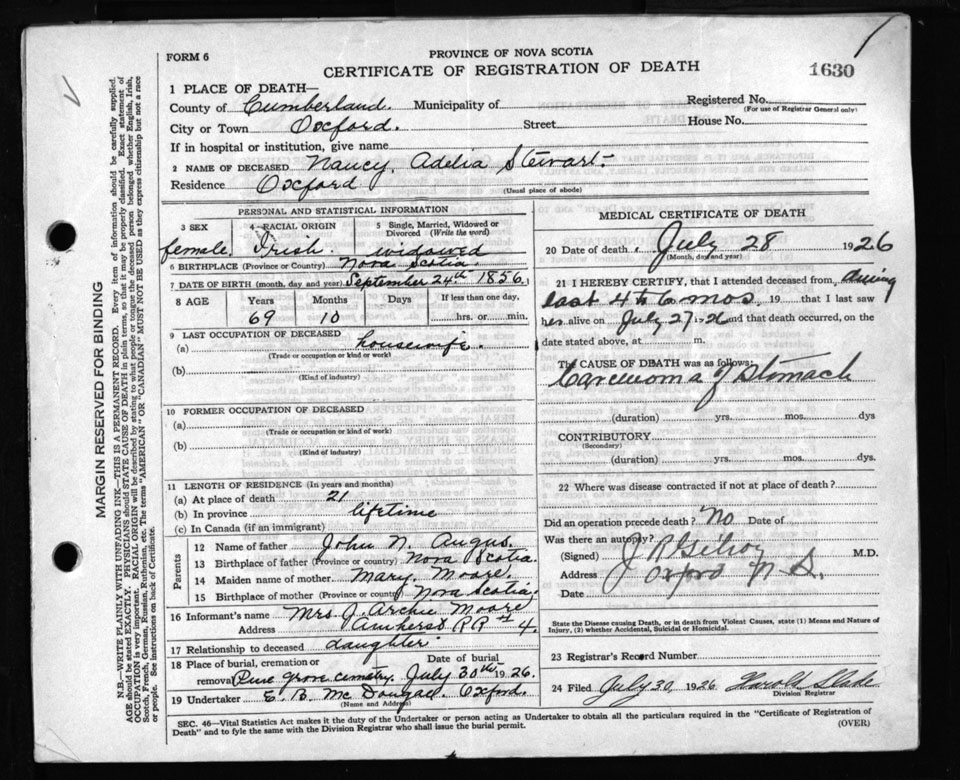 FORM 6
PROVINCE OF NOVA SCOTIA
CERTIFICATE OF REGISTRATION OF DEATH
1630
1 PLACE OF DEATH—
County of Cumberland. Municipality of
Registered No.
(For use of Registrar General only)
City or Town Oxford. Street House No.
If in hospital or institution, give name
2 NAME OF DECEASED Nancy Adelia Stewart
Residence Oxford
(Usual place of abode)
PERSONAL AND STATISTICAL INFORMATION
3 SEX female.
4 RACIAL ORIGIN Irish
5 Single, Married, Widowed or Divorced (Write the word) widowed
6 BIRTHPLACE (Province or Country) Nova Scotia
7 DATE OF BIRTH (month, day and year) September 24th 1856.
8 AGE Years Months Days If less than one day,
69 10 hrs. or min.
9 LAST OCCUPATION OF DECEASED
(a) housewife.
(Trade or occupation or kind or work)
(b)
(Kind of industry)
10 FORMER OCCUPATION OF DECEASED
(a)
(Trade or occupation or kind of work)
(b)
(Kind of industry)
11 LENGTH OF RESIDENCE (In years and months)
(a) At place of death 21
(b) In province lifetime
(c) In Canada (if an immigrant)
Parents
12 Name of father John N. Angus.
13 Birthplace of father (Province or country) Nova Scotia.
14 Maiden name of mother Mary Moore.
15 Birthplace of mother (Province or country) Nova Scotia.
16 Informant's name Mrs J. Archie Moore
Address Amherst RR # 4.
17 Relationship to deceased daughter
18 Place of burial, cremation or removal Pine grove cemetry. Date of burial July 30th 1926.
19 Undertaker E. B. McDougall. Oxford.
(Name and Address)
MEDICAL CERTIFICATE OF DEATH
20 Date of death July 28 1926
(Month, day and year)
21 I HEREBY CERTIFY, that I attended deceased from during
last 4 to 6 mos. 19 that I last saw
her alive on July 27-26 and that death occurred, on the
date stated above, at m.
The CAUSE OF DEATH was as follows:
Carcinoma of Stomach
(duration) yrs. mos. dys
CONTRIBUTORY
(Secondary)
(duration) yrs. mos. dys.
22 Where was disease contracted if not at place of death?
Did an operation precede death? No Date of
Was there an autopsy?
(Signed) J R Gilroy M.D.
Address Oxford N S.
Date
State the Disease causing Death, or in death from Violent Causes, state (1) Means and Nature of
Injury, (2) whether Accidental, Suicidal or Homicidal.
23 Registrar's Record Number
24 Filed July 30 1926 Harold Slade
Division Registrar
SEC. 46—Vital Statistics Act makes it the duty of the Undertaker or person acting as Undertaker to obtain all the particulars required in the "Certificate of Registration of
Death" and to fyle the same with the Division Registrar who shall issue the burial permit. (OVER)
MARGIN RESERVED FOR BINDING
N.B.—WRITE PLAINLY WITH UNFADING INK—THIS IS A PERMANENT RECORD. Every item of information should be carefully supplied.
AGE should be stated EXACTLY. PHYSICIANS should STATE CAUSE OF DEATH in plain terms, so that it may be properly classified. Exact statement of
OCCUPATION is very important. RACIAL ORIGIN will be described by stating to what people or tongue the deceased person belonged whether English, Irish,
Scotch, French, German, Russian, Ruthenian, etc. The terms "AMERICAN" or "CANADIAN" MUST NOT BE USED as they express citizenship but not a race
or people. See instructions on back of Certificate.